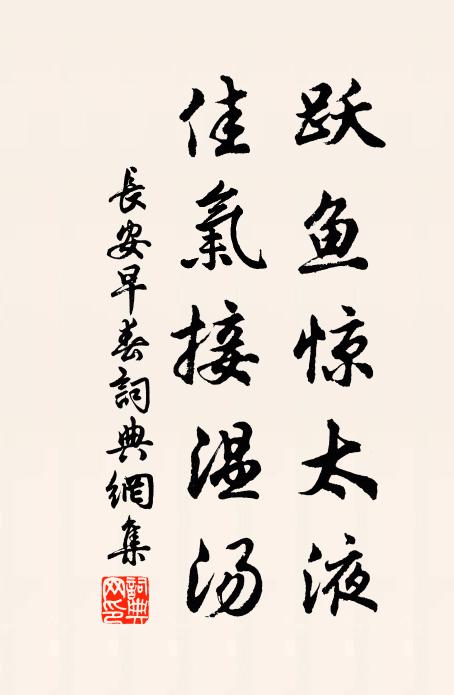 跃鱼惊太液
佳氣接温汤
長安早春詞典網集
詞典
网印